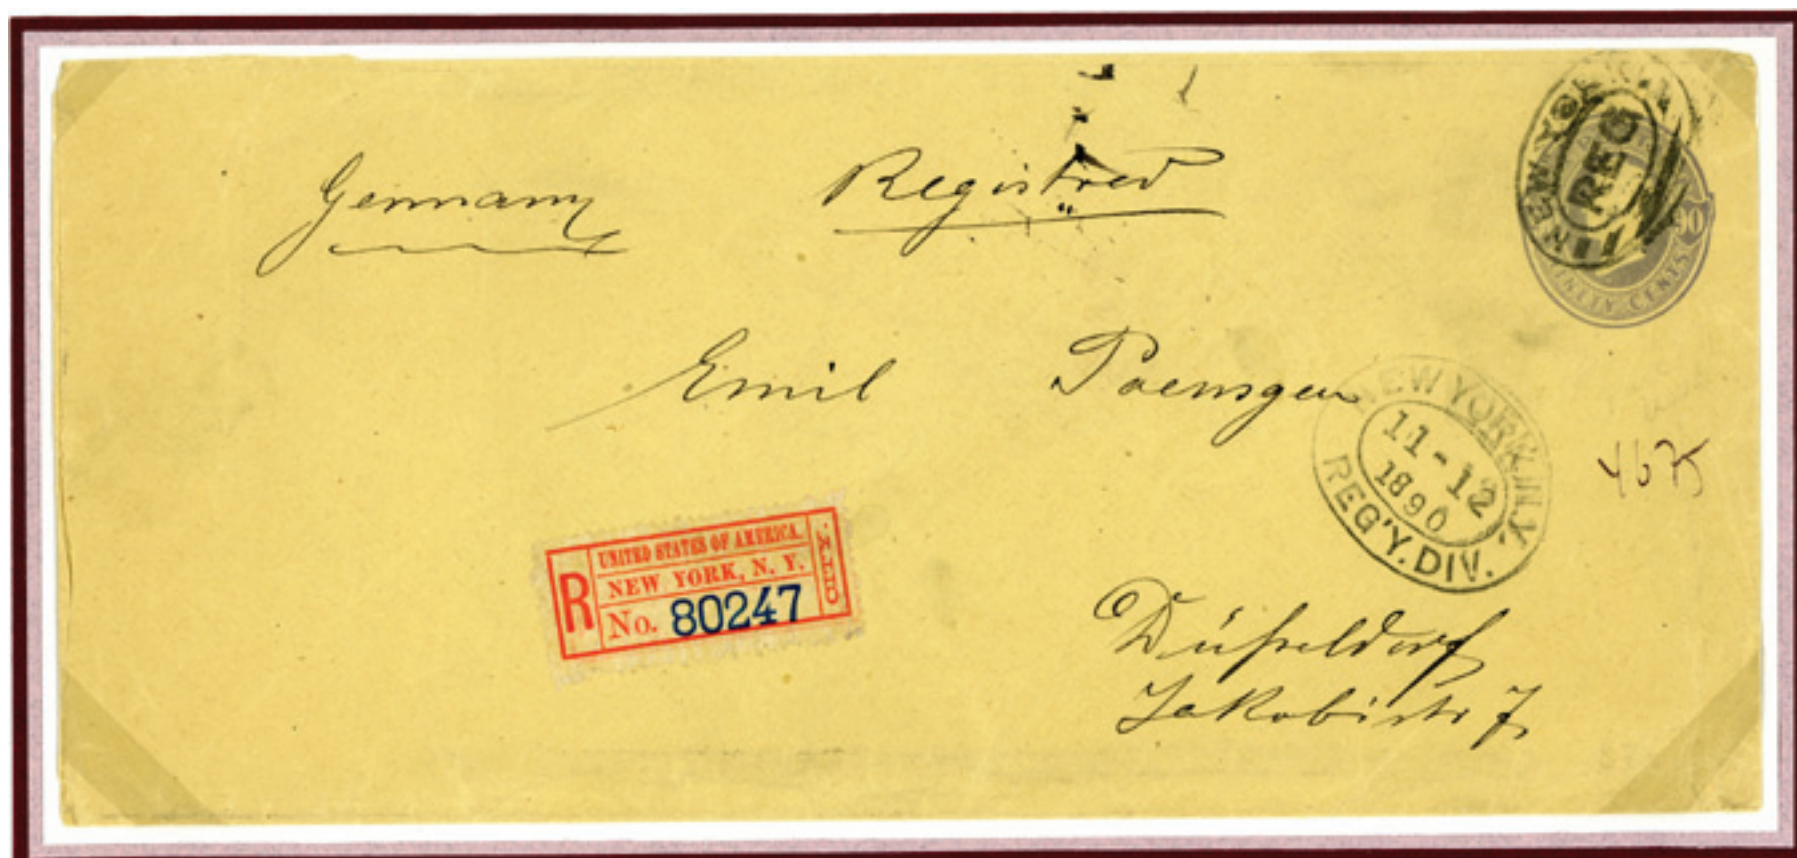 Germany Registred
NEW YORK
REG
90
NINETY CENTS
Emil Poensgen
NEW YORK, N.Y.
11-12
1890
REG'Y. DIV.
4675
R
UNITED STATES OF AMERICA.
NEW YORK, N. Y.
No. 80247
Düsseldorf
Jakobistr 7